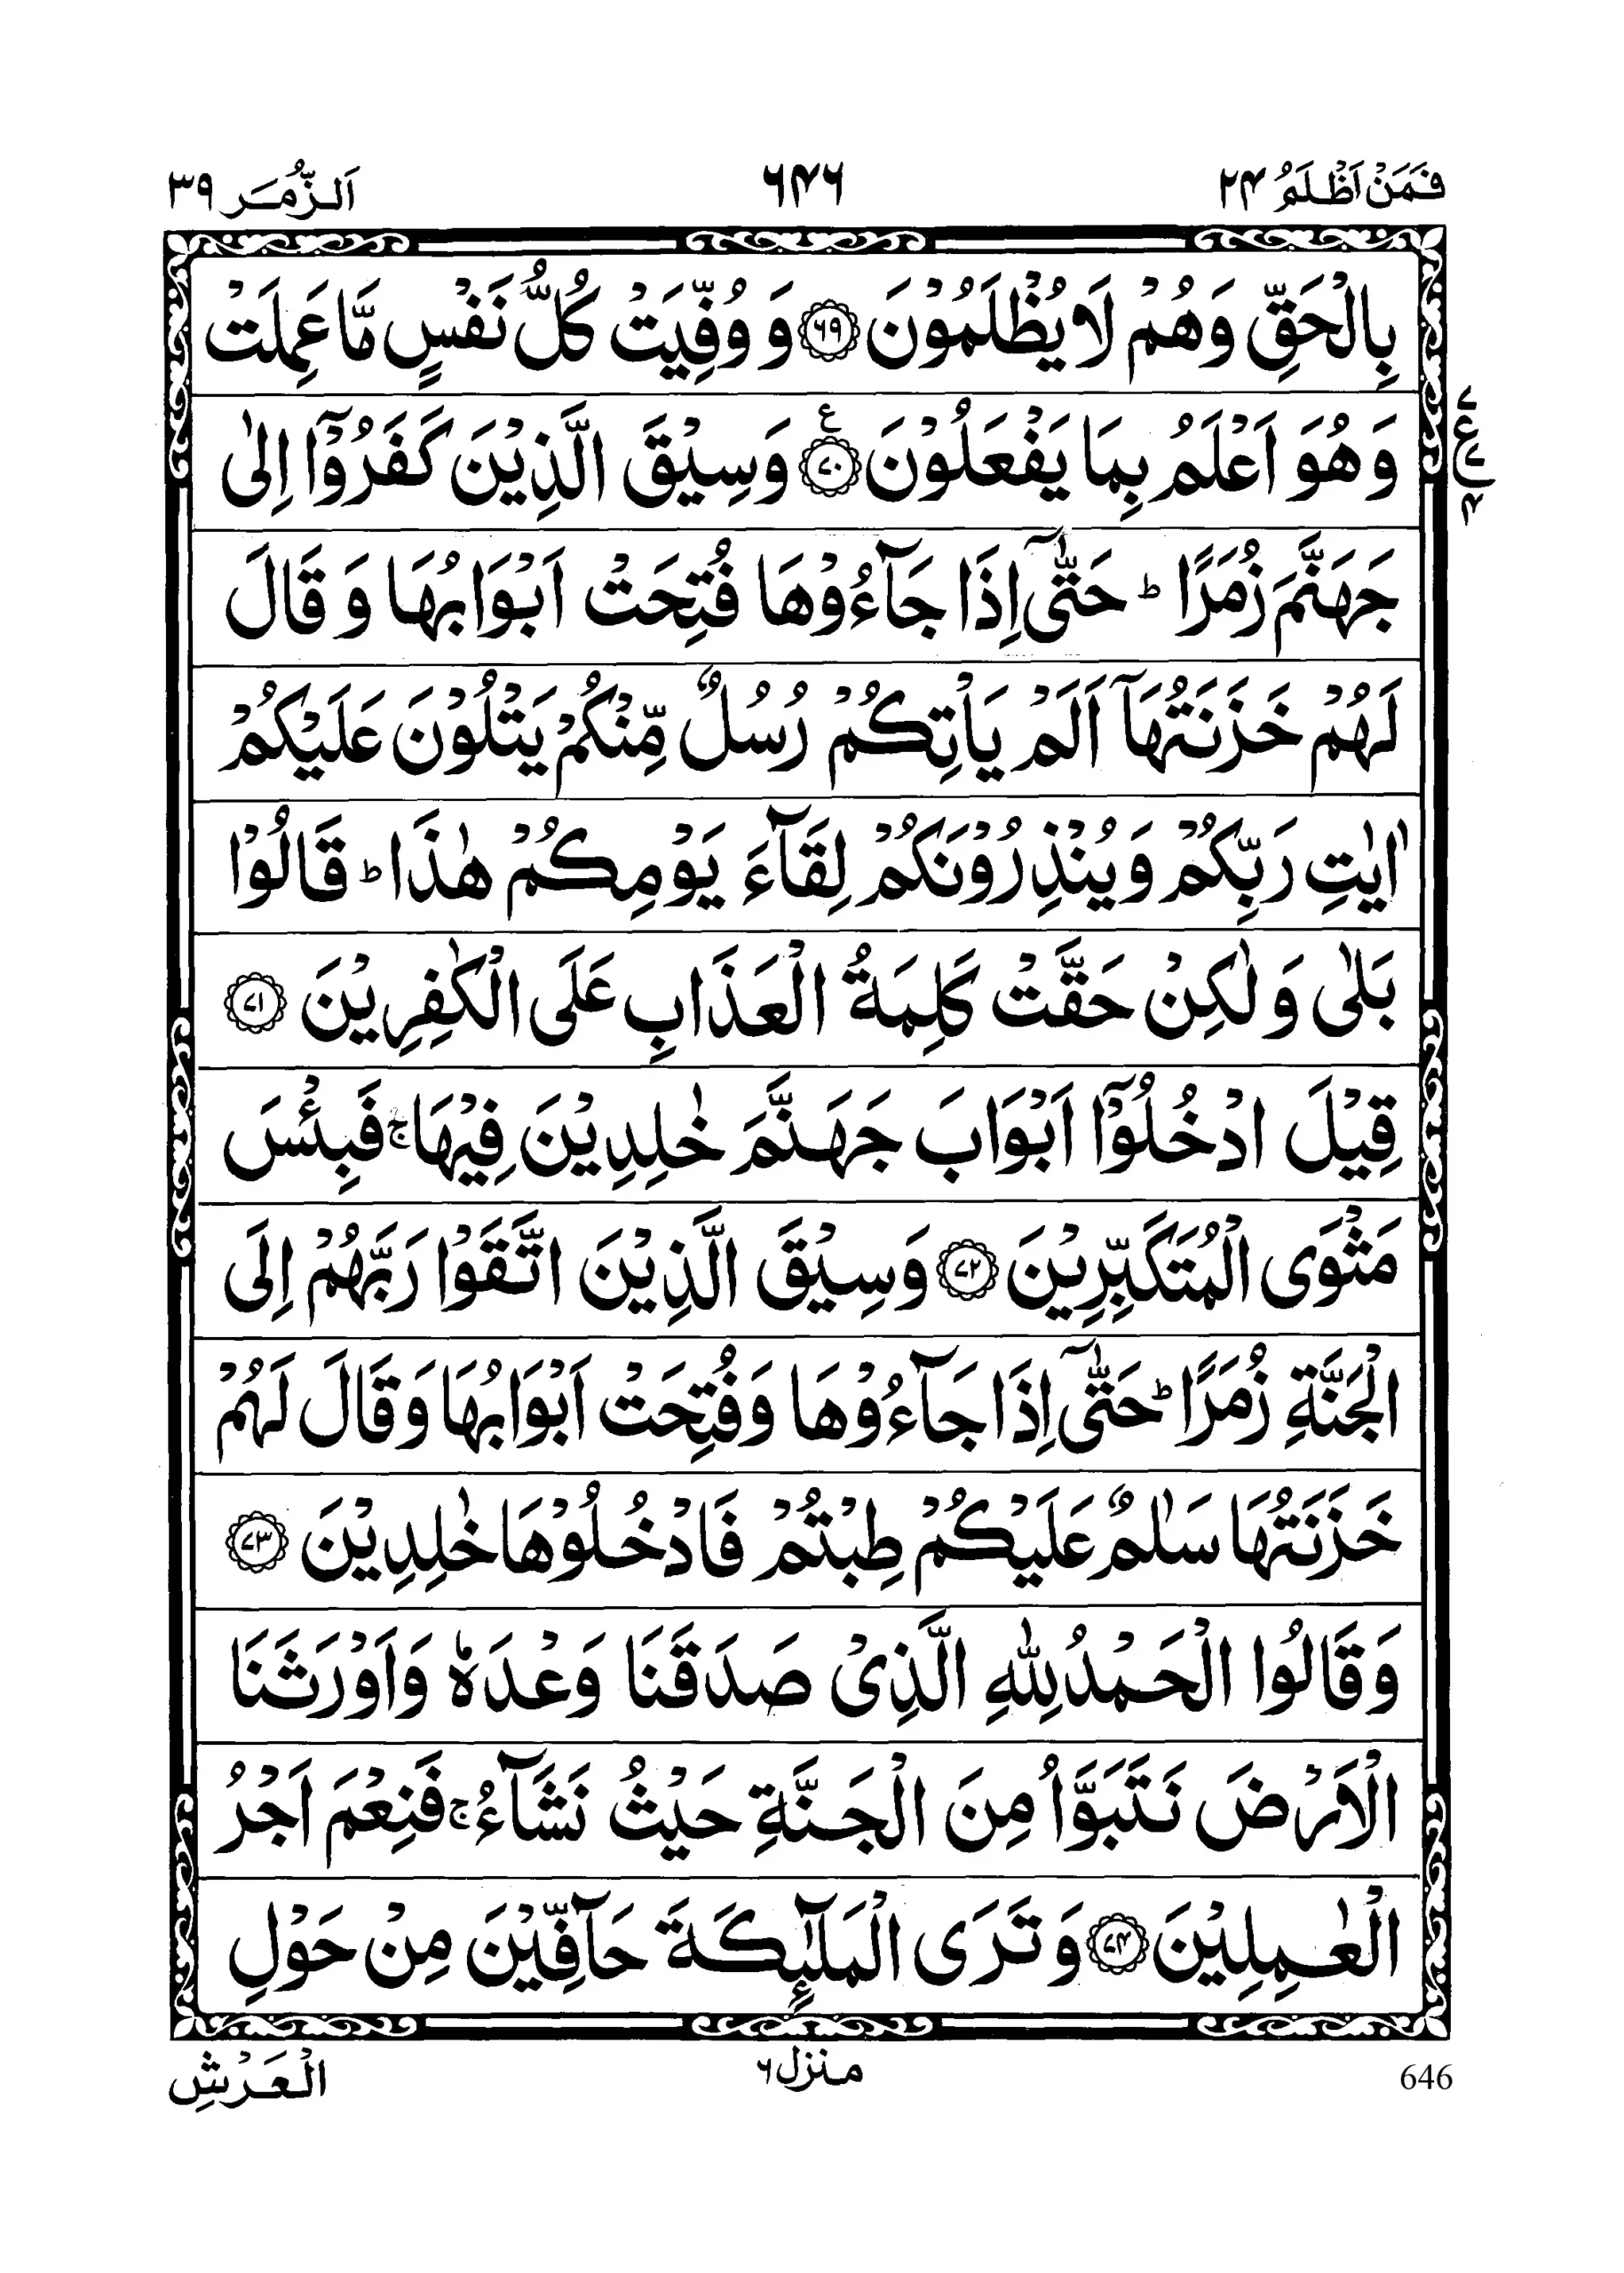 فَمَنْ اَظْلَمُ ۲۴ ۶۴۶ اَلزُّمَر ۳۹
بِالْحَقِّ وَهُمْ لَا يُظْلَمُوْنَ ۶۹ وَ وُفِّيَتْ كُلُّ نَفْسٍ مَّا عَمِلَتْ
وَهُوَ اَعْلَمُ بِمَا يَفْعَلُوْنَ ع ۷۰ وَسِيْقَ الَّذِيْنَ كَفَرُوْۤا اِلٰى
۷ ع ۴
جَهَنَّمَ زُمَرًا ؕ حَتّٰۤى اِذَا جَآءُوْهَا فُتِحَتْ اَبْوَابُهَا وَ قَالَ
لَهُمْ خَزَنَتُهَاۤ اَلَمْ يَاْتِكُمْ رُسُلٌ مِّنْكُمْ يَتْلُوْنَ عَلَيْكُمْ
اٰيٰتِ رَبِّكُمْ وَيُنْذِرُوْنَكُمْ لِقَآءَ يَوْمِكُمْ هٰذَا ؕ قَالُوْا
بَلٰى وَ لٰكِنْ حَقَّتْ كَلِمَةُ الْعَذَابِ عَلَى الْكٰفِرِيْنَ ۷۱
قِيْلَ ادْخُلُوْۤا اَبْوَابَ جَهَنَّمَ خٰلِدِيْنَ فِيْهَا ۚ فَبِئْسَ
مَثْوَى الْمُتَكَبِّرِيْنَ ۷۲ وَسِيْقَ الَّذِيْنَ اتَّقَوْا رَبَّهُمْ اِلَى
الْجَنَّةِ زُمَرًا ؕ حَتّٰۤى اِذَا جَآءُوْهَا وَفُتِحَتْ اَبْوَابُهَا وَقَالَ لَهُمْ
خَزَنَتُهَا سَلٰمٌ عَلَيْكُمْ طِبْتُمْ فَادْخُلُوْهَا خٰلِدِيْنَ ۷۳
وَقَالُوا الْحَمْدُ لِلّٰهِ الَّذِىْ صَدَقَنَا وَعْدَهٗ وَاَوْرَثَنَا
الْاَرْضَ نَتَبَوَّاُ مِنَ الْجَنَّةِ حَيْثُ نَشَآءُ ۚ فَنِعْمَ اَجْرُ
الْعٰمِلِيْنَ ۷۴ وَ تَرَى الْمَلٰٓئِكَةَ حَآفِّيْنَ مِنْ حَوْلِ
646 منزل ۶ الْعَرْشِ